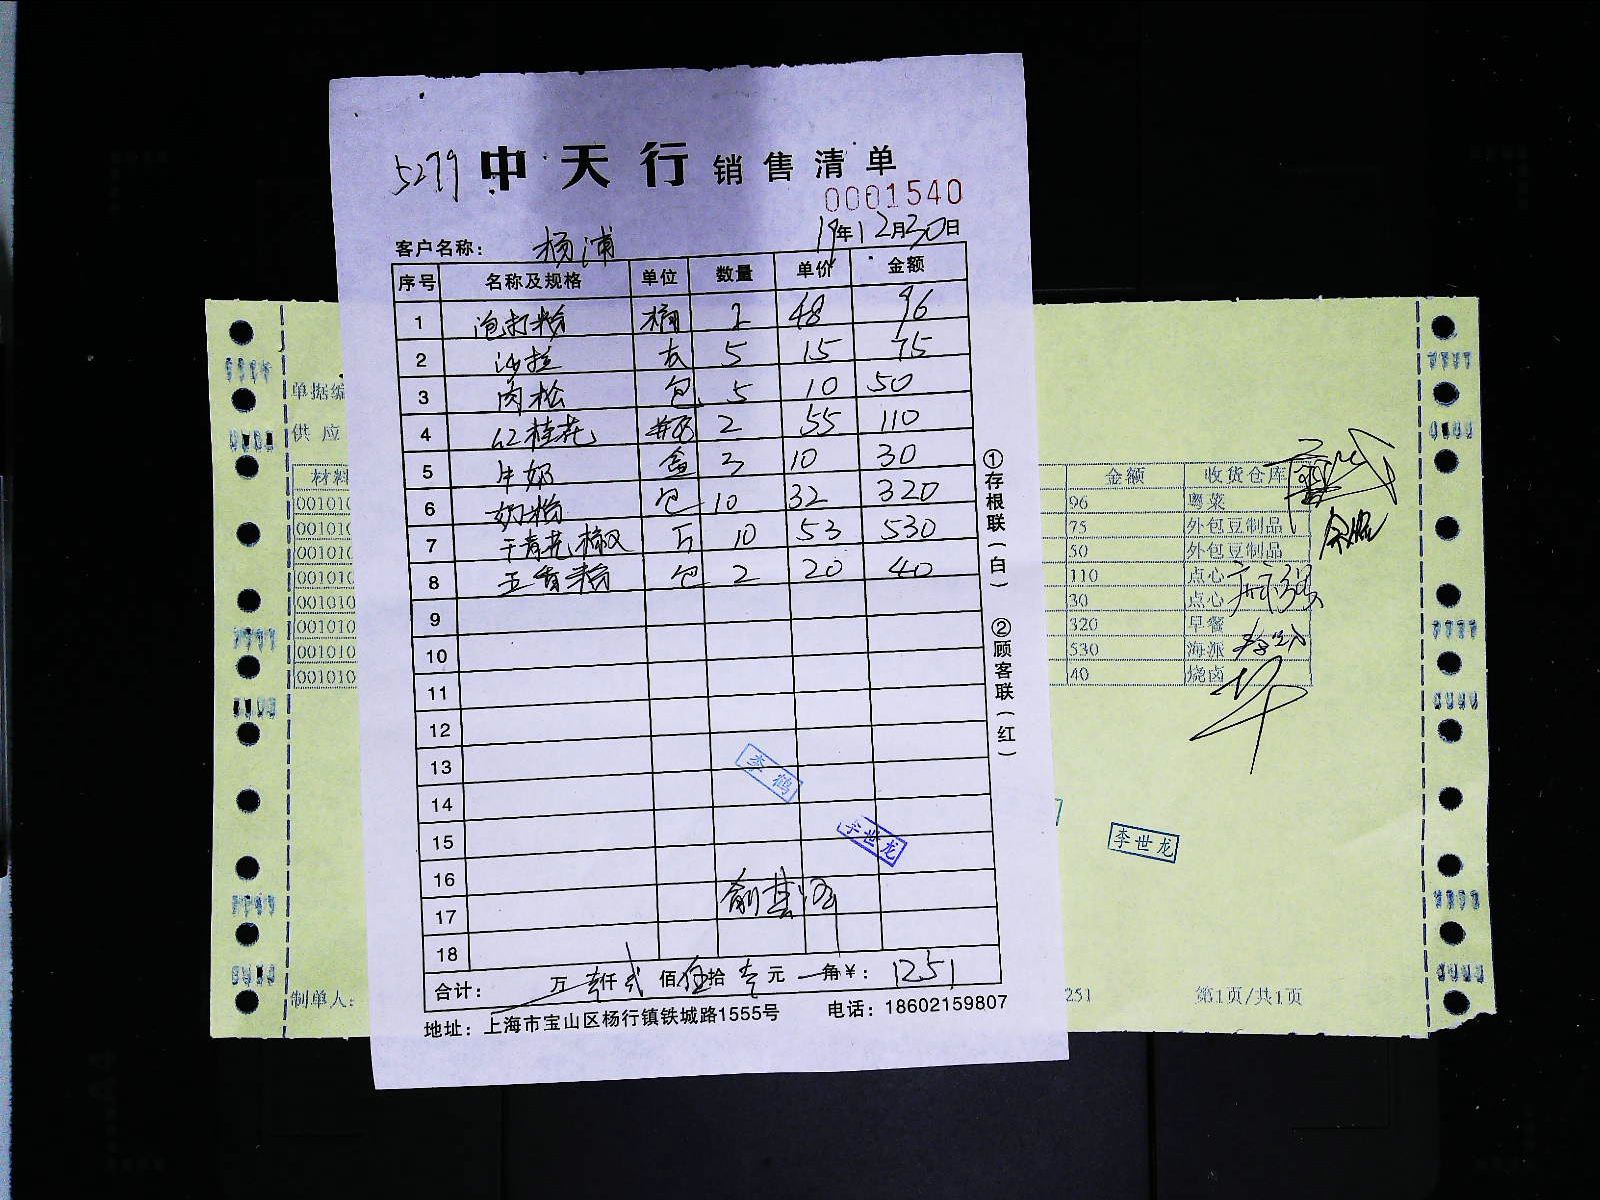 5279 中天行 销售清单
0001540
客户名称: 杨浦 19年12月30日
序号 名称及规格 单位 数量 单价 金额
1 泡打粉 桶 2 48 96
2 沙拉 支 5 15 75
3 肉松 包 5 10 50
4 红桂花 瓶 2 55 110
5 牛奶 盒 3 10 30
6 奶粉 包 10 32 320
7 干青花椒 斤 10 53 530
8 五香粉 包 2 20 40
9
10
11
12
13
李鹤
14
15
李世龙
16
17
18
合计: 万 壹仟 贰佰 伍拾 壹元 角 ¥: 1251
地址: 上海市宝山区杨行镇铁城路1555号 电话: 18602159807
①存根联(白) ②顾客联(红)
单据编
供应
材料 金额 收货仓库
001010 96 粤菜
001010 75 外包豆制品
001010 50 外包豆制品
001010 110 点心
001010 30 点心
001010 320 早餐
001010 530 海派
001010 40 烧卤
李世龙
制单人: 251 第1页/共1页